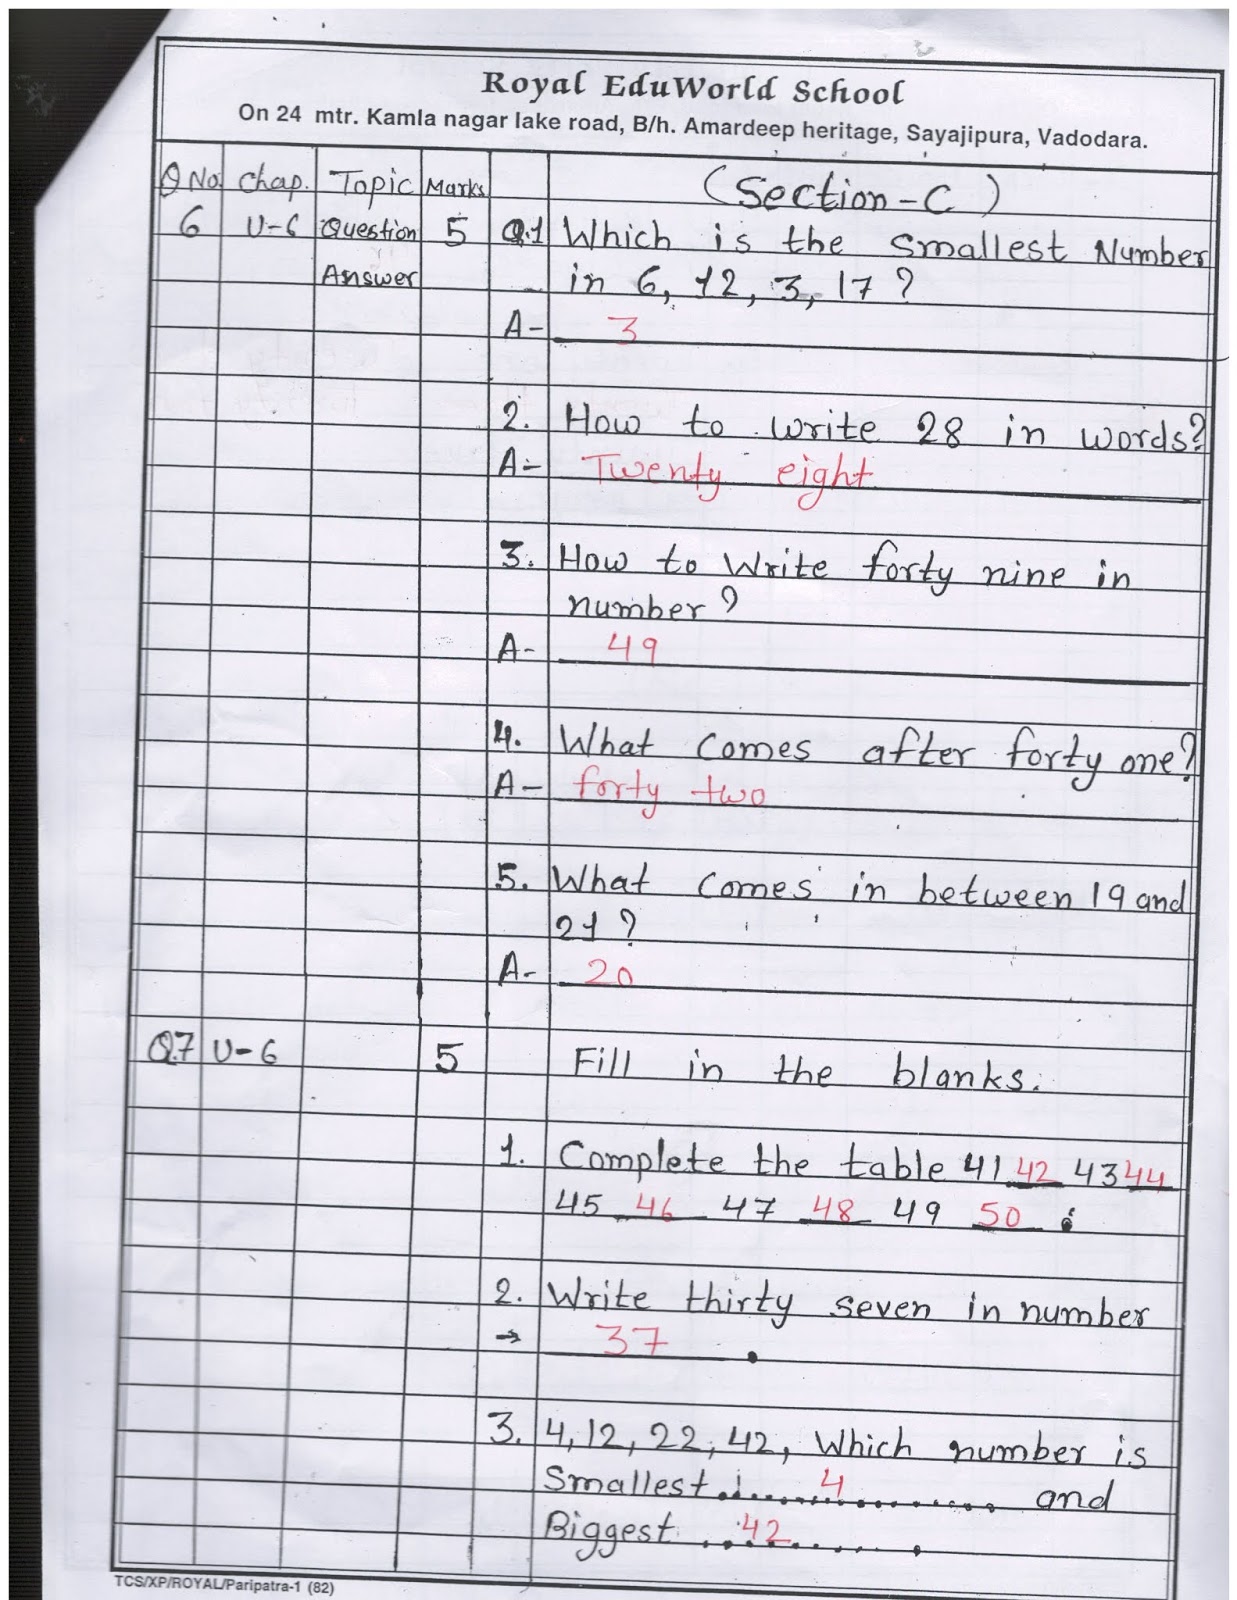 Royal EduWorld School
On 24 mtr. Kamla nagar lake road, B/h. Amardeep heritage, Sayajipura, Vadodara.
Q No Chap. Topic Marks (Section-C)
6 U-6 Question 5 Q.1 Which is the Smallest Number
Answer in 6, 12, 3, 17 ?
A- 3
2. How to write 28 in words?
A- Twenty eight
3. How to Write forty nine in
number ?
A- 49
4. What comes after forty one?
A- forty two
5. What comes in between 19 and
21 ?
A- 20
Q.7 U-6 5 Fill in the blanks.
1. Complete the table 41 42 43 44
45 46 47 48 49 50 .
2. Write thirty seven in number
→ 37 .
3. 4, 12, 22, 42, Which number is
Smallest ........ 4 ............ and
Biggest ... 42 ..........
TCS/XP/ROYAL/Paripatra-1 (82)